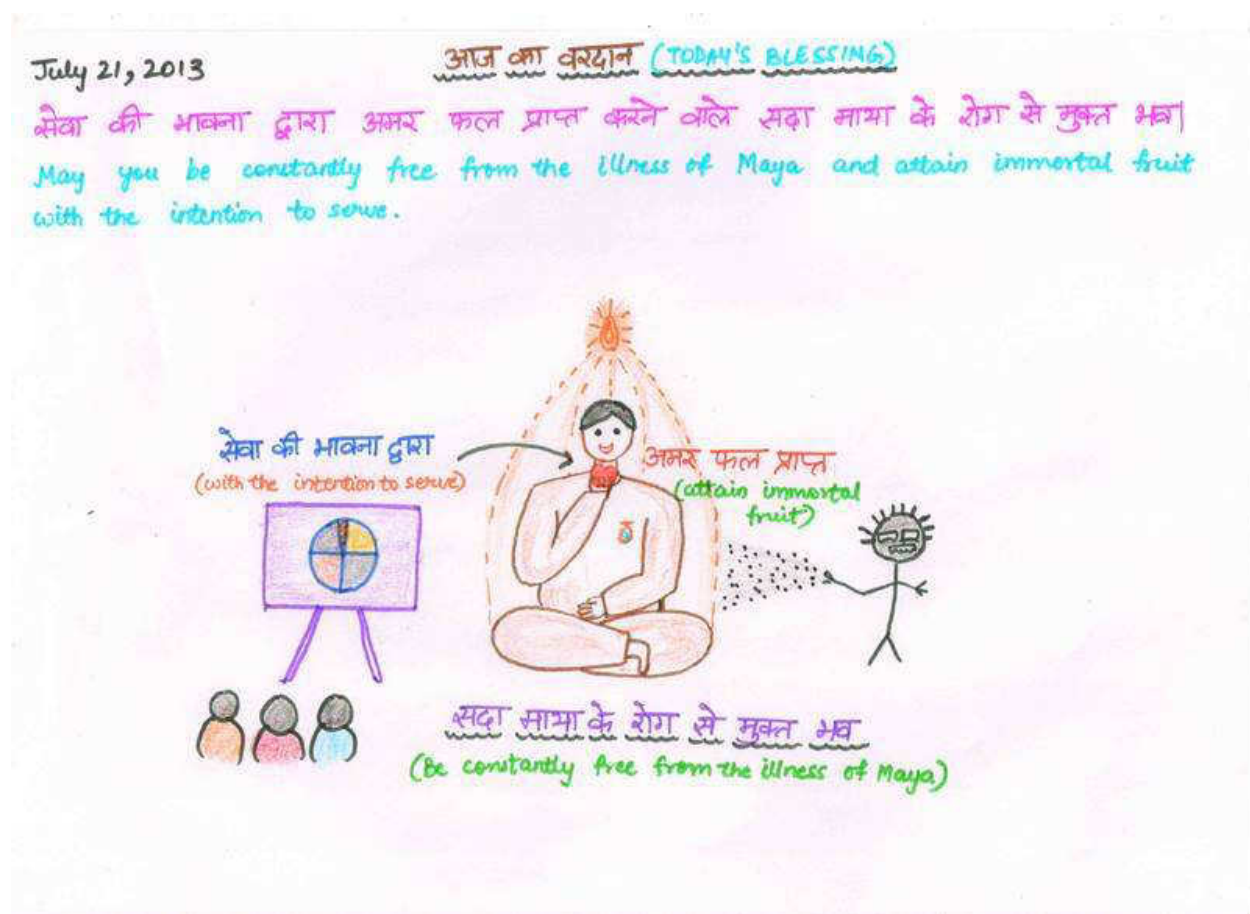 July 21, 2013
आज का वरदान (TODAY'S BLESSING)
सेवा की भावना द्वारा अमर फल प्राप्त करने वाले सदा माया के रोग से मुक्त भव|
May you be constantly free from the illness of Maya and attain immortal fruit
with the intention to serve.
सेवा की भावना द्वारा
(with the intention to serve)
अमर फल प्राप्त
(attain immortal
fruit)
सदा माया के रोग से मुक्त भव
(Be constantly free from the illness of Maya)